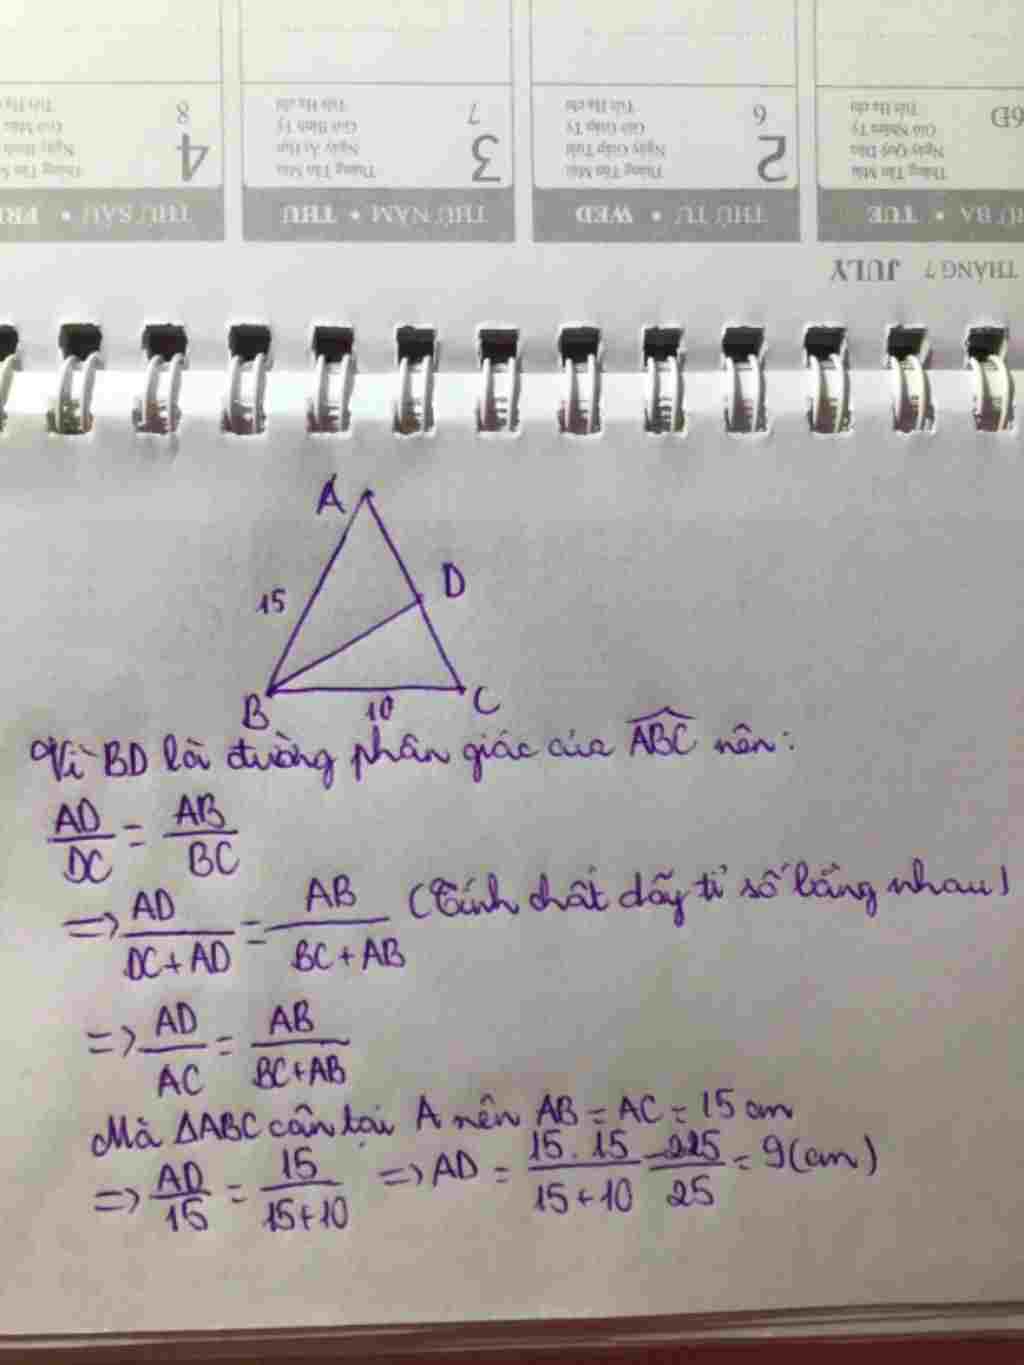 8
Tiết Hạ chí
7
Tiết Hạ chí
6
Tiết Hạ chí
Tiết Hạ chí
4
3
Giờ Bính Tý
Ngày Ất Hợi
Tháng Tân Mùi
2
Giờ Giáp Tý
Ngày Giáp Tuất
Tháng Tân Mùi
Giờ Nhâm Tý
Ngày Quý Dậu
Tháng Tân Mùi
THỨ SÁU • FRI
THỨ NĂM • THU
THỨ TƯ • WED
BA • TUE
THÁNG 7 JULY
A
D
15
B
10
C
Vì BD là đường phân giác của \widehat{ABC} nên:
AD/DC = AB/BC
=> AD/(DC+AD) = AB/(BC+AB) (Tính chất dãy tỉ số bằng nhau)
=> AD/AC = AB/(BC+AB)
Mà ΔABC cân tại A nên AB = AC = 15 cm
=> AD/15 = 15/(15+10) => AD = (15.15)/(15+10) = 225/25 = 9(cm)